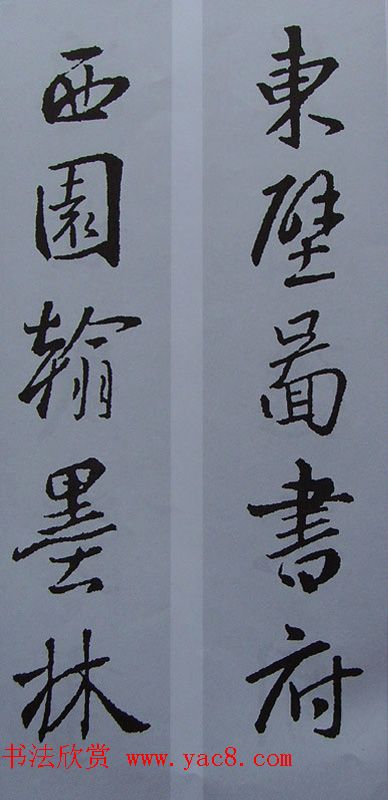 東壁啚書府
西園翰墨林
书法欣赏 www.yac8.com